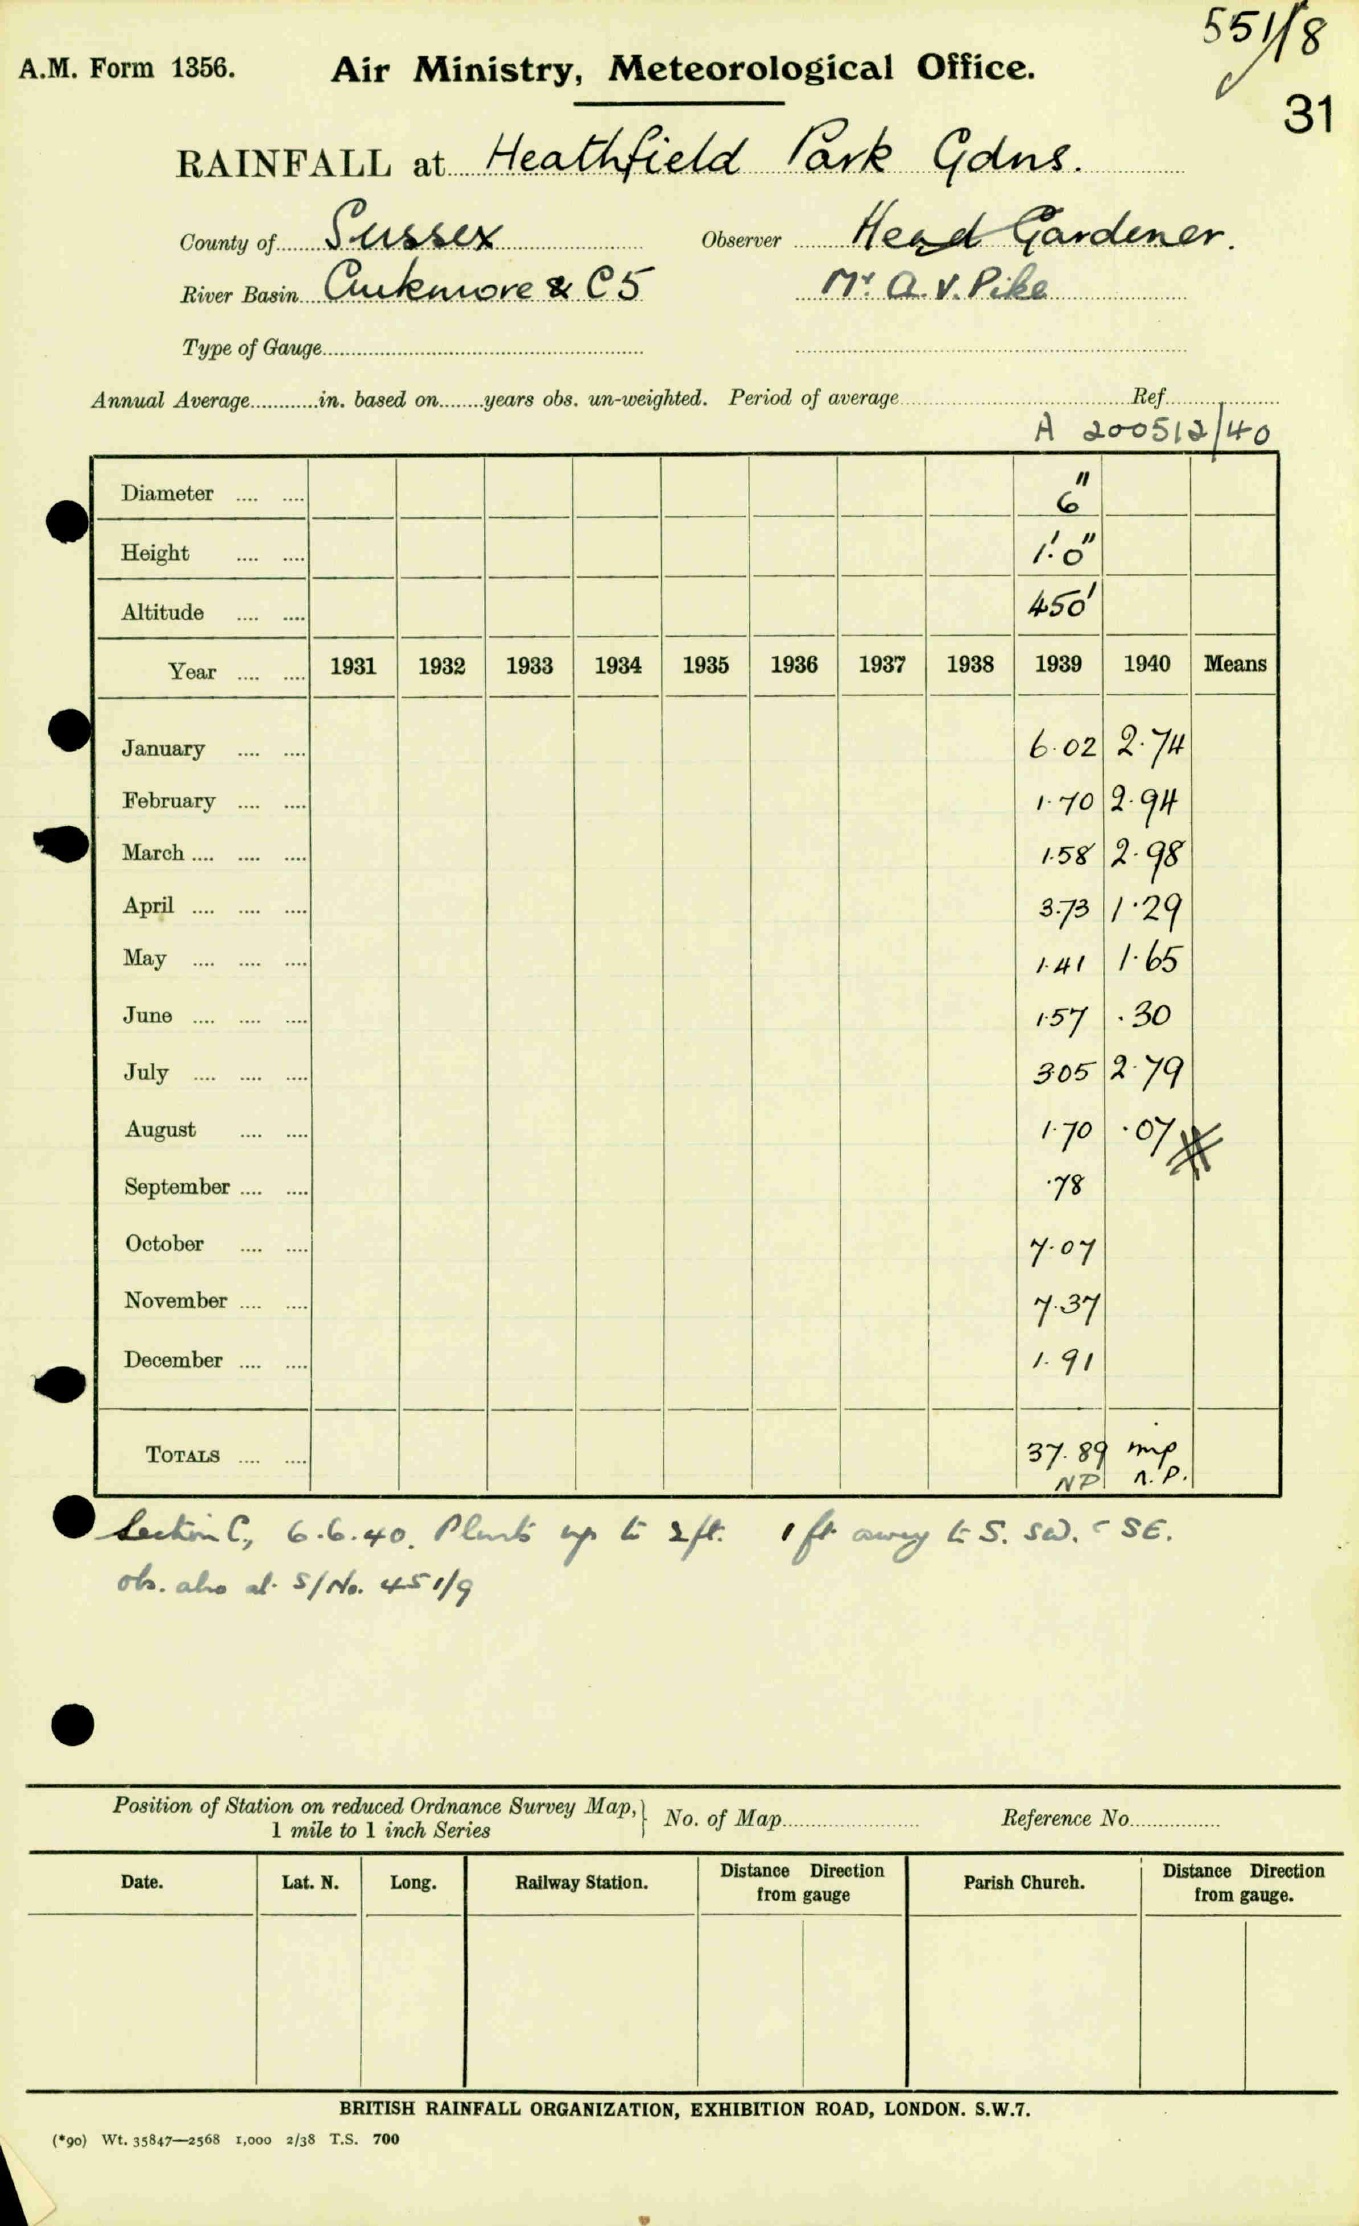 551/8
A.M. Form 1356. Air Ministry, Meteorological Office.
31
RAINFALL at Heathfield Park Gdns.
County of Sussex Observer Head Gardener.
River Basin Cuckmore & C5 Mr. A. V. Pike
Type of Gauge
Annual Average in. based on years obs. un-weighted. Period of average Ref.
A 200512/40
Diameter .... .... 6"
Height .... .... 1'.0"
Altitude .... .... 450'
Year .... .... 1931 1932 1933 1934 1935 1936 1937 1938 1939 1940 Means
January .... .... 6.02 2.74
February .... .... 1.70 2.94
March .... .... .... 1.58 2.98
April .... .... .... 3.73 1.29
May .... .... .... 1.41 1.65
June .... .... .... 1.57 .30
July .... .... .... 3.05 2.79
August .... .... 1.70 .07
September .... .... .78
October .... .... 7.07
November .... .... 7.37
December .... .... 1.91
TOTALS .... .... 37.89 imp
NP n.P.
Section C, 6.6.40. Plants up to 2ft. 1 ft away to S. SW. SE.
obs. also at S/No. 451/9
Position of Station on reduced Ordnance Survey Map, } No. of Map Reference No.
1 mile to 1 inch Series
Date. Lat. N. Long. Railway Station. Distance Direction from gauge Parish Church. Distance Direction from gauge.
BRITISH RAINFALL ORGANIZATION, EXHIBITION ROAD, LONDON. S.W.7.
(*90) Wt. 35847—2568 1,000 2/38 T.S. 700